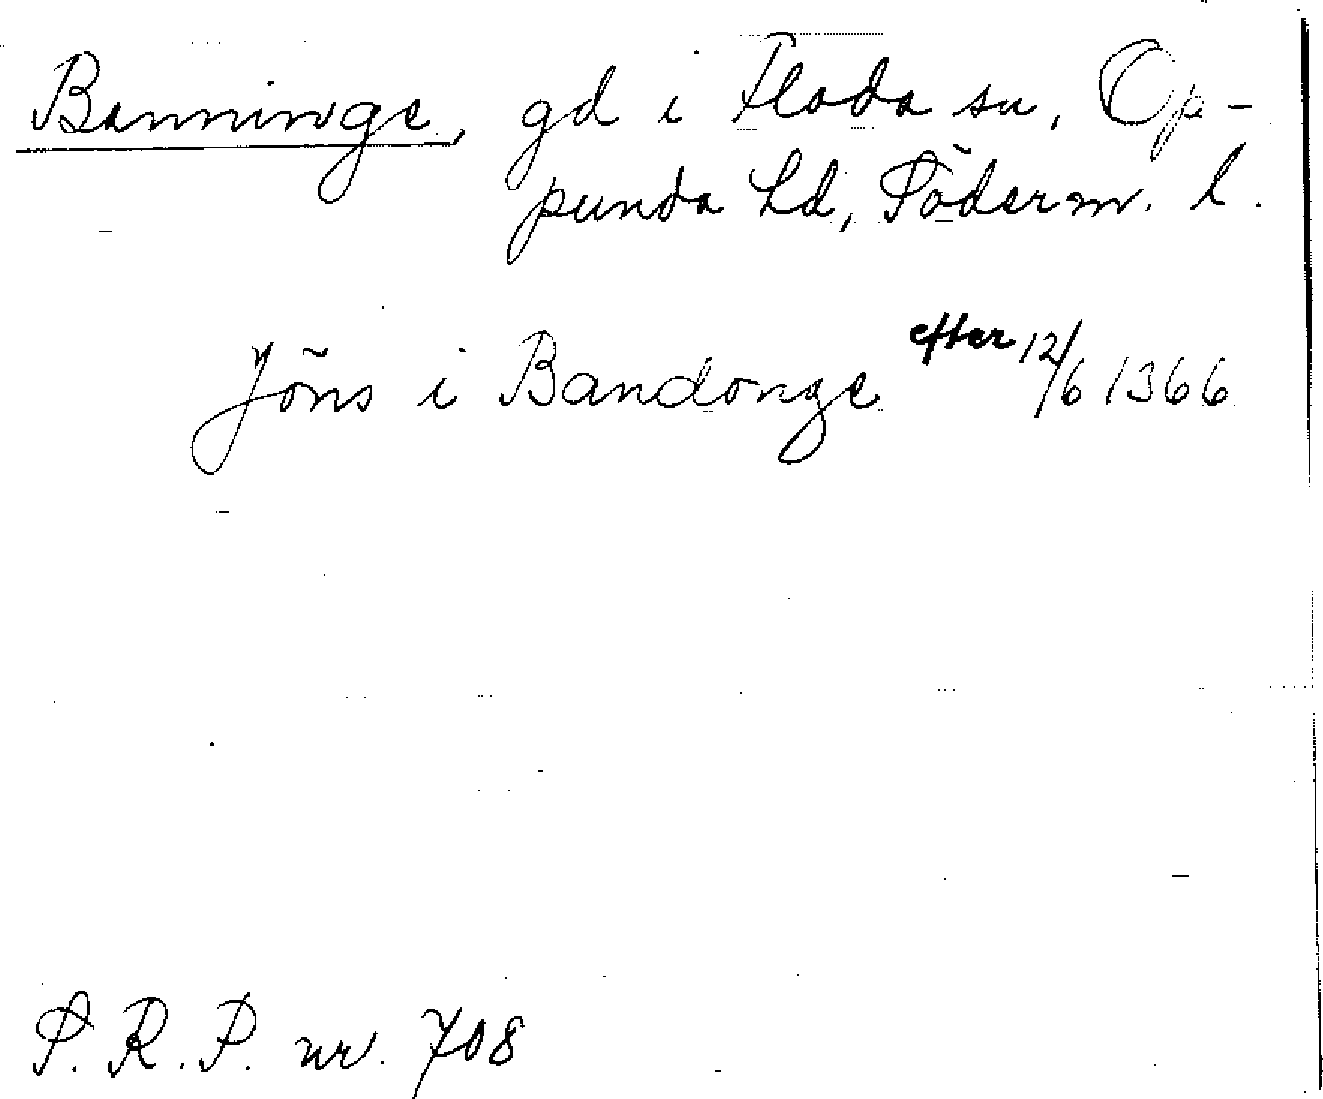 Banninge, gd i Floda sn, Op-
punda hd, Söderm. l.
Jöns i Bandonge efter 12/6 1366
S. R. P. nr. 708